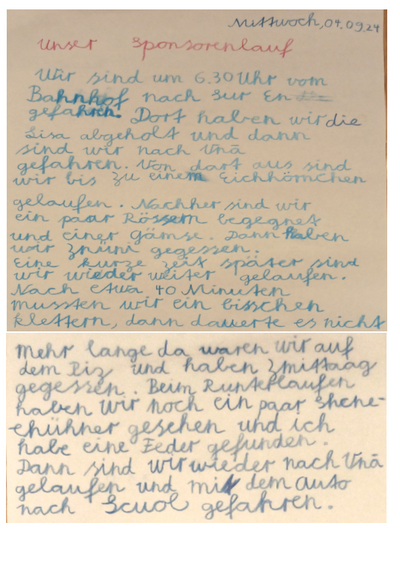 Mittwoch, 04.09.24
Unser Sponsorenlauf
Wir sind um 6.30 Uhr vom
Bahnhof nach Sur En
gefahren. Dort haben wir die
Lisa abgeholt und dann
sind wir nach Unā
gefahren. Von dort aus sind
wir bis zu einem Eichhörnchen
gelaufen. Nachher sind wir
ein paar Rössern begegnet
und einer Gämse. Dann haben
wir znüni gegessen.
Eine kurze zeit später sind
wir wieder weiter gelaufen.
Nach etwa 40 Minuten
mussten wir ein bisschen
klettern, dann dauerte es nicht
mehr lange da waren wir auf
dem Piz und haben zmittaag
gegessen. Beim Runterlaufen
haben wir noch ein paar Schne-
ehühner gesehen und ich
habe eine Feder gefunden.
Dann sind wir wieder nach Unā
gelaufen und mit dem Auto
nach Scuol gefahren.